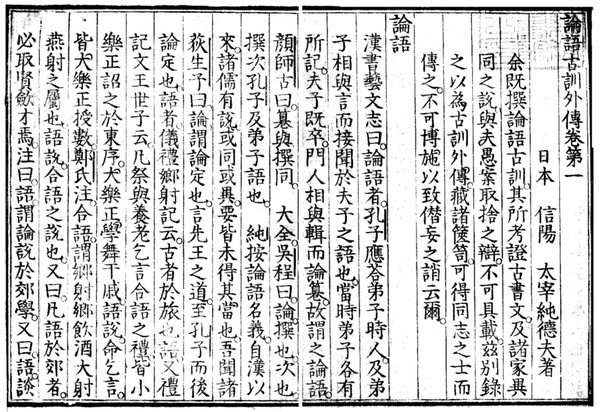 論語古訓外傳卷第一
日本　信陽　太宰純德夫著
余既撰論語古訓。其所考證古書文。及諸家異
同之說。與夫愚案取捨之辯。不可具載。茲別錄
之以為古訓外傳。藏諸篋笥。可得同志之士而
傳之。不可博施以致僭妄之誚云爾。
論語
漢書藝文志曰。論語者。孔子應荅弟子時人。及弟
子相與言而接聞於夫子之語也。當時弟子各有
所記。夫子既卒。門人相與輯而論篹。故謂之論語。
顏師古曰。篹與撰同。　大全吳程曰。論撰也。次也。
撰次孔子及弟子語也。　純按論語名義。自漢以
來。諸儒有說。或同或異。要皆未得其當也。吾聞諸
荻生子曰。論謂論定也。言先王之道至孔子而後
論定也。語者。儀禮鄉射記云。古者於旅也語。又禮
記文王世子云。凡祭與養老乞言合語之禮。皆小
樂正詔之於東序。大樂正學舞干戚。語說。命乞言。
皆大樂正授數。鄭氏注。合語。謂鄉射鄉飲酒大射
燕射之屬也。語說。合語之說也。又曰。凡語於郊者。
必取賢斂才焉。注曰。語謂論說於郊學。又曰。語談